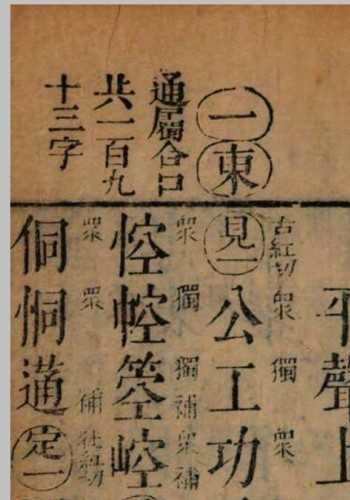 平聲上
一東
通屬合口
共一百九
十三字
古紅切 眾 獨 眾
見一公工功
眾 獨 獨補 眾補
悾箜崆
眾 眾 補 徒紅切
侗恫蓪定一